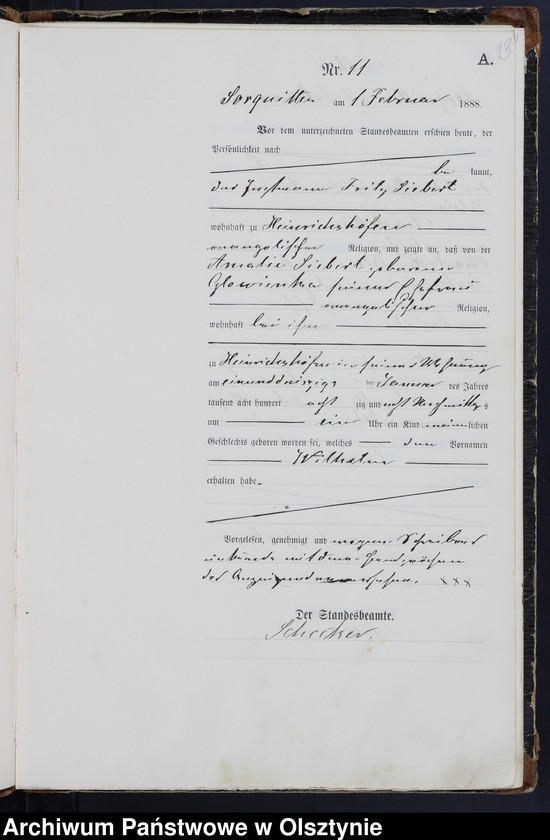 A.
23
Nr. 11
Sorquitten am 1 Februar 1888.
Vor dem unterzeichneten Standesbeamten erschien heute, der
Persönlichkeit nach
be kannt,
der Instmann Fritz Siebert
wohnhaft zu Heinrichshöfen
evangelischer Religion, und zeigte an, daß von der
Amalie Siebert geborene
Glowienka seiner Ehefrau
evangelischer Religion,
wohnhaft bei ihm
zu Heinrichshöfen in seiner Wohnung
am einunddreißigs ten Januar des Jahres
tausend acht hundert acht zig und acht Nachmittags
um ein Uhr ein Kind männlichen
Geschlechts geboren worden sei, welches den Vornamen
Wilhelm
erhalten habe.
Vorgelesen, genehmigt und wegen Schreibens
unkunde mit dem Handzeichen
des Anzeigenden versehen. XXX
Der Standesbeamte.
Archiwum Państwowe w Olsztynie